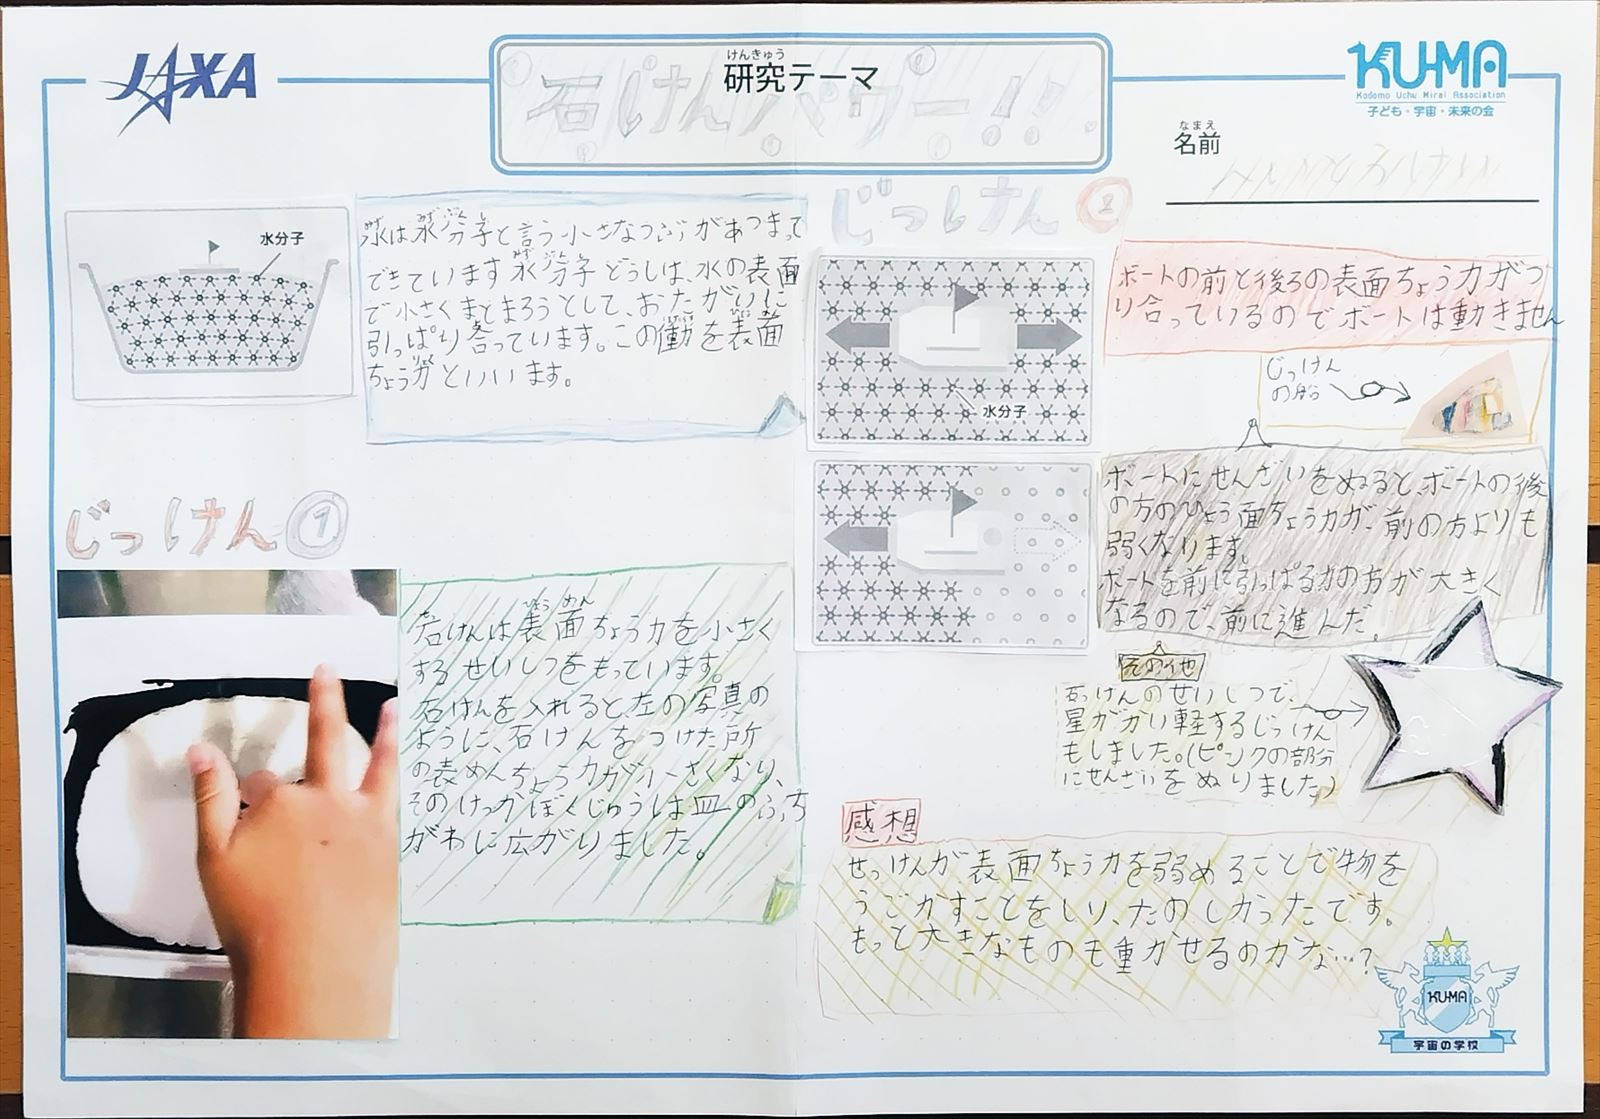 JAXA
けんきゅう
研究テーマ
石けんパワー!!
KU-MA
Kodomo Uchu Mirai Association
子ども・宇宙・未来の会
なまえ
名前
水分子
水は水分子と言う小さなつぶがあつまって
できています水分子どうしは、水の表面
で小さくまとまろうとして、おたがいに
引っぱり合っています。この働を表面
ちょう力といいます。
じっけん①
石けんは表面ちょう力を小さく
するせいしつをもっています。
石けんを入れると、左の写真の
ように、石けんをつけた所
の表めんちょう力が小さくなり、
そのけっかぼくじゅうは皿のふち
がわに広がりました。
じっけん②
水分子
ボートの前と後ろの表面ちょう力がつ
り合っているのでボートは動きません
じっけん
の船
ボートにせんざいをぬると、ボートの後
の方のひょう面ちょう力が、前の方よりも
弱くなります。
ボートを前に引っぱる力の方が大きく
なるので、前に進んだ。
その他
石けんのせいしつで、
星がかい転するじっけん
もしました。(ピンクの部分
にせんざいをぬりました)
感想
せっけんが表面ちょう力を弱めることで物を
うごかすことをしり、たのしかったです。
もっと大きなものも重かせるのかな…?
KU-MA
宇宙の学校